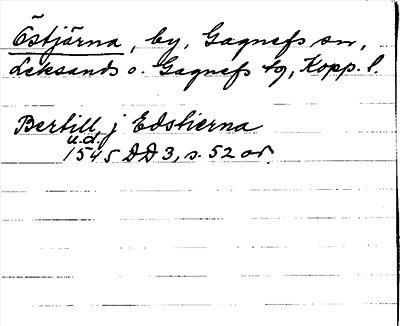 Östjärna, by, Gagnefs sn,
Leksands o. Gagnefs tg, Kopp. l.
Bertill j Edstierna
u.d.
1545 DD 3, s. 52 or.